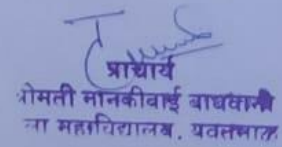 प्राचार्य
श्रीमती मानकीबाई बाघवानी
ला महाविद्यालय, यवतमाळ